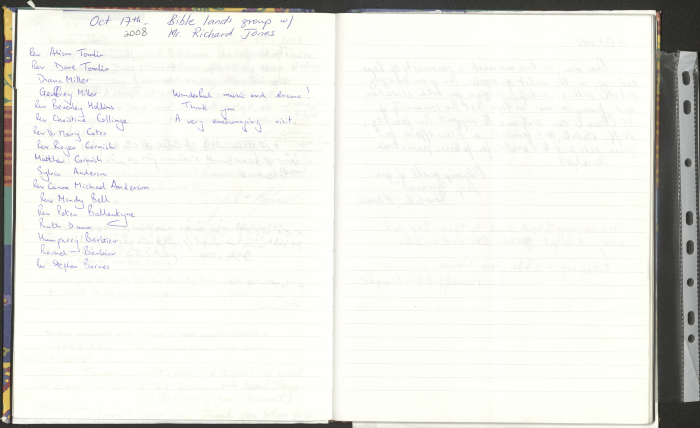 Oct 17th. Bible lands group w/
2008 Mr. Richard Jones
Rev Alison Tomlin
Rev Dave Tomlin
Diana Miller
Geoffrey Miller Wonderful music and drama!
Rev Beverley Hollins Thank you
Rev Christine Collinge A very encouraging visit.
Rev Dr Mary Cotes
Rev Roger Cornish
Matthew Cornish
Sylvia Anderson
Rev Canon Michael Anderson
Rev Mindy Bell
Rev Peter Ballantyne
Ruth Dunn
Humphrey Barbier
Rachel Barbier
Rev Stephen Barnes